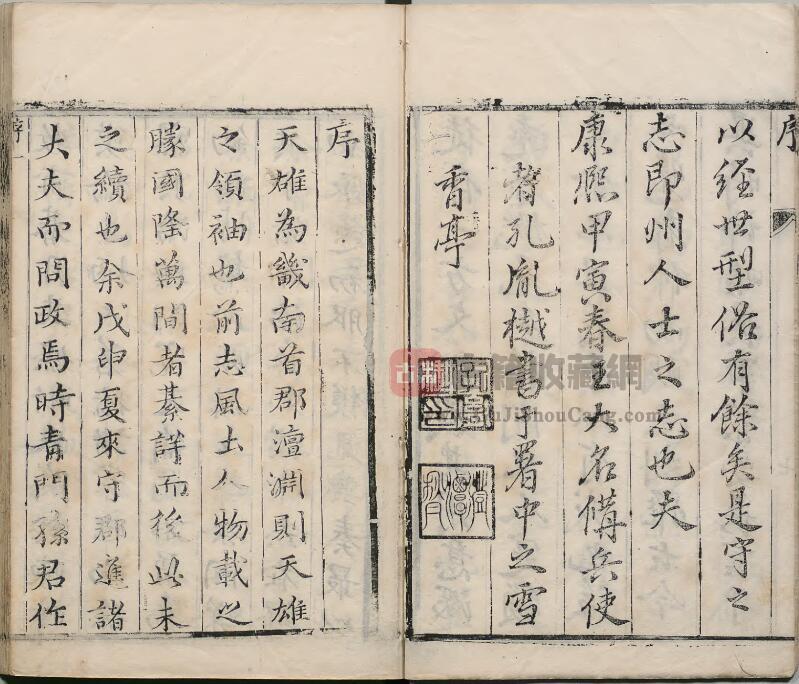 序
以經世型俗有餘矣是守之
志即州人士之志也夫
康熙甲寅春王大名備兵使
者孔胤樾書于署中之雪
香亭
序
天雄為畿南首郡澶淵則天雄
之領袖也前志風土人物載之
勝國隆萬間者綦詳而後此未
之續也余戊申夏來守郡進諸
大夫而問政焉時青門孫君作
序一